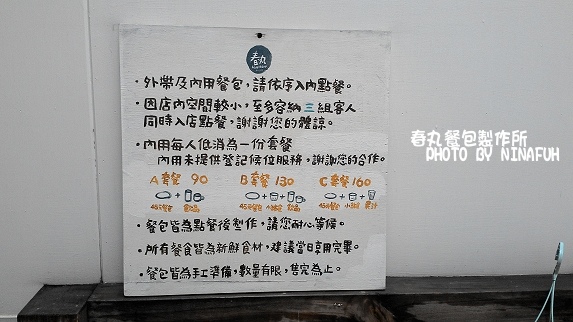 春丸
・外帶及內用餐包，請依序入內點餐。
・因店內空間較小，至多容納三組客人
同時入店點餐，謝謝您的體諒。
・內用每人低消為一份套餐
內用未提供登記候位服務，謝謝您的合作。
A套餐 90 B套餐 130 C套餐 160
+ + + + +
45元餐包 飲品 45元餐包 小點 飲品 45元餐包 小點 果汁
・餐包皆為點餐後製作，請您耐心等候。
・所有餐食皆為新鮮食材，建議當日享用完畢。
・餐包皆為手工準備，數量有限，售完為止。
春丸餐包製作所
PHOTO BY NINAFUH